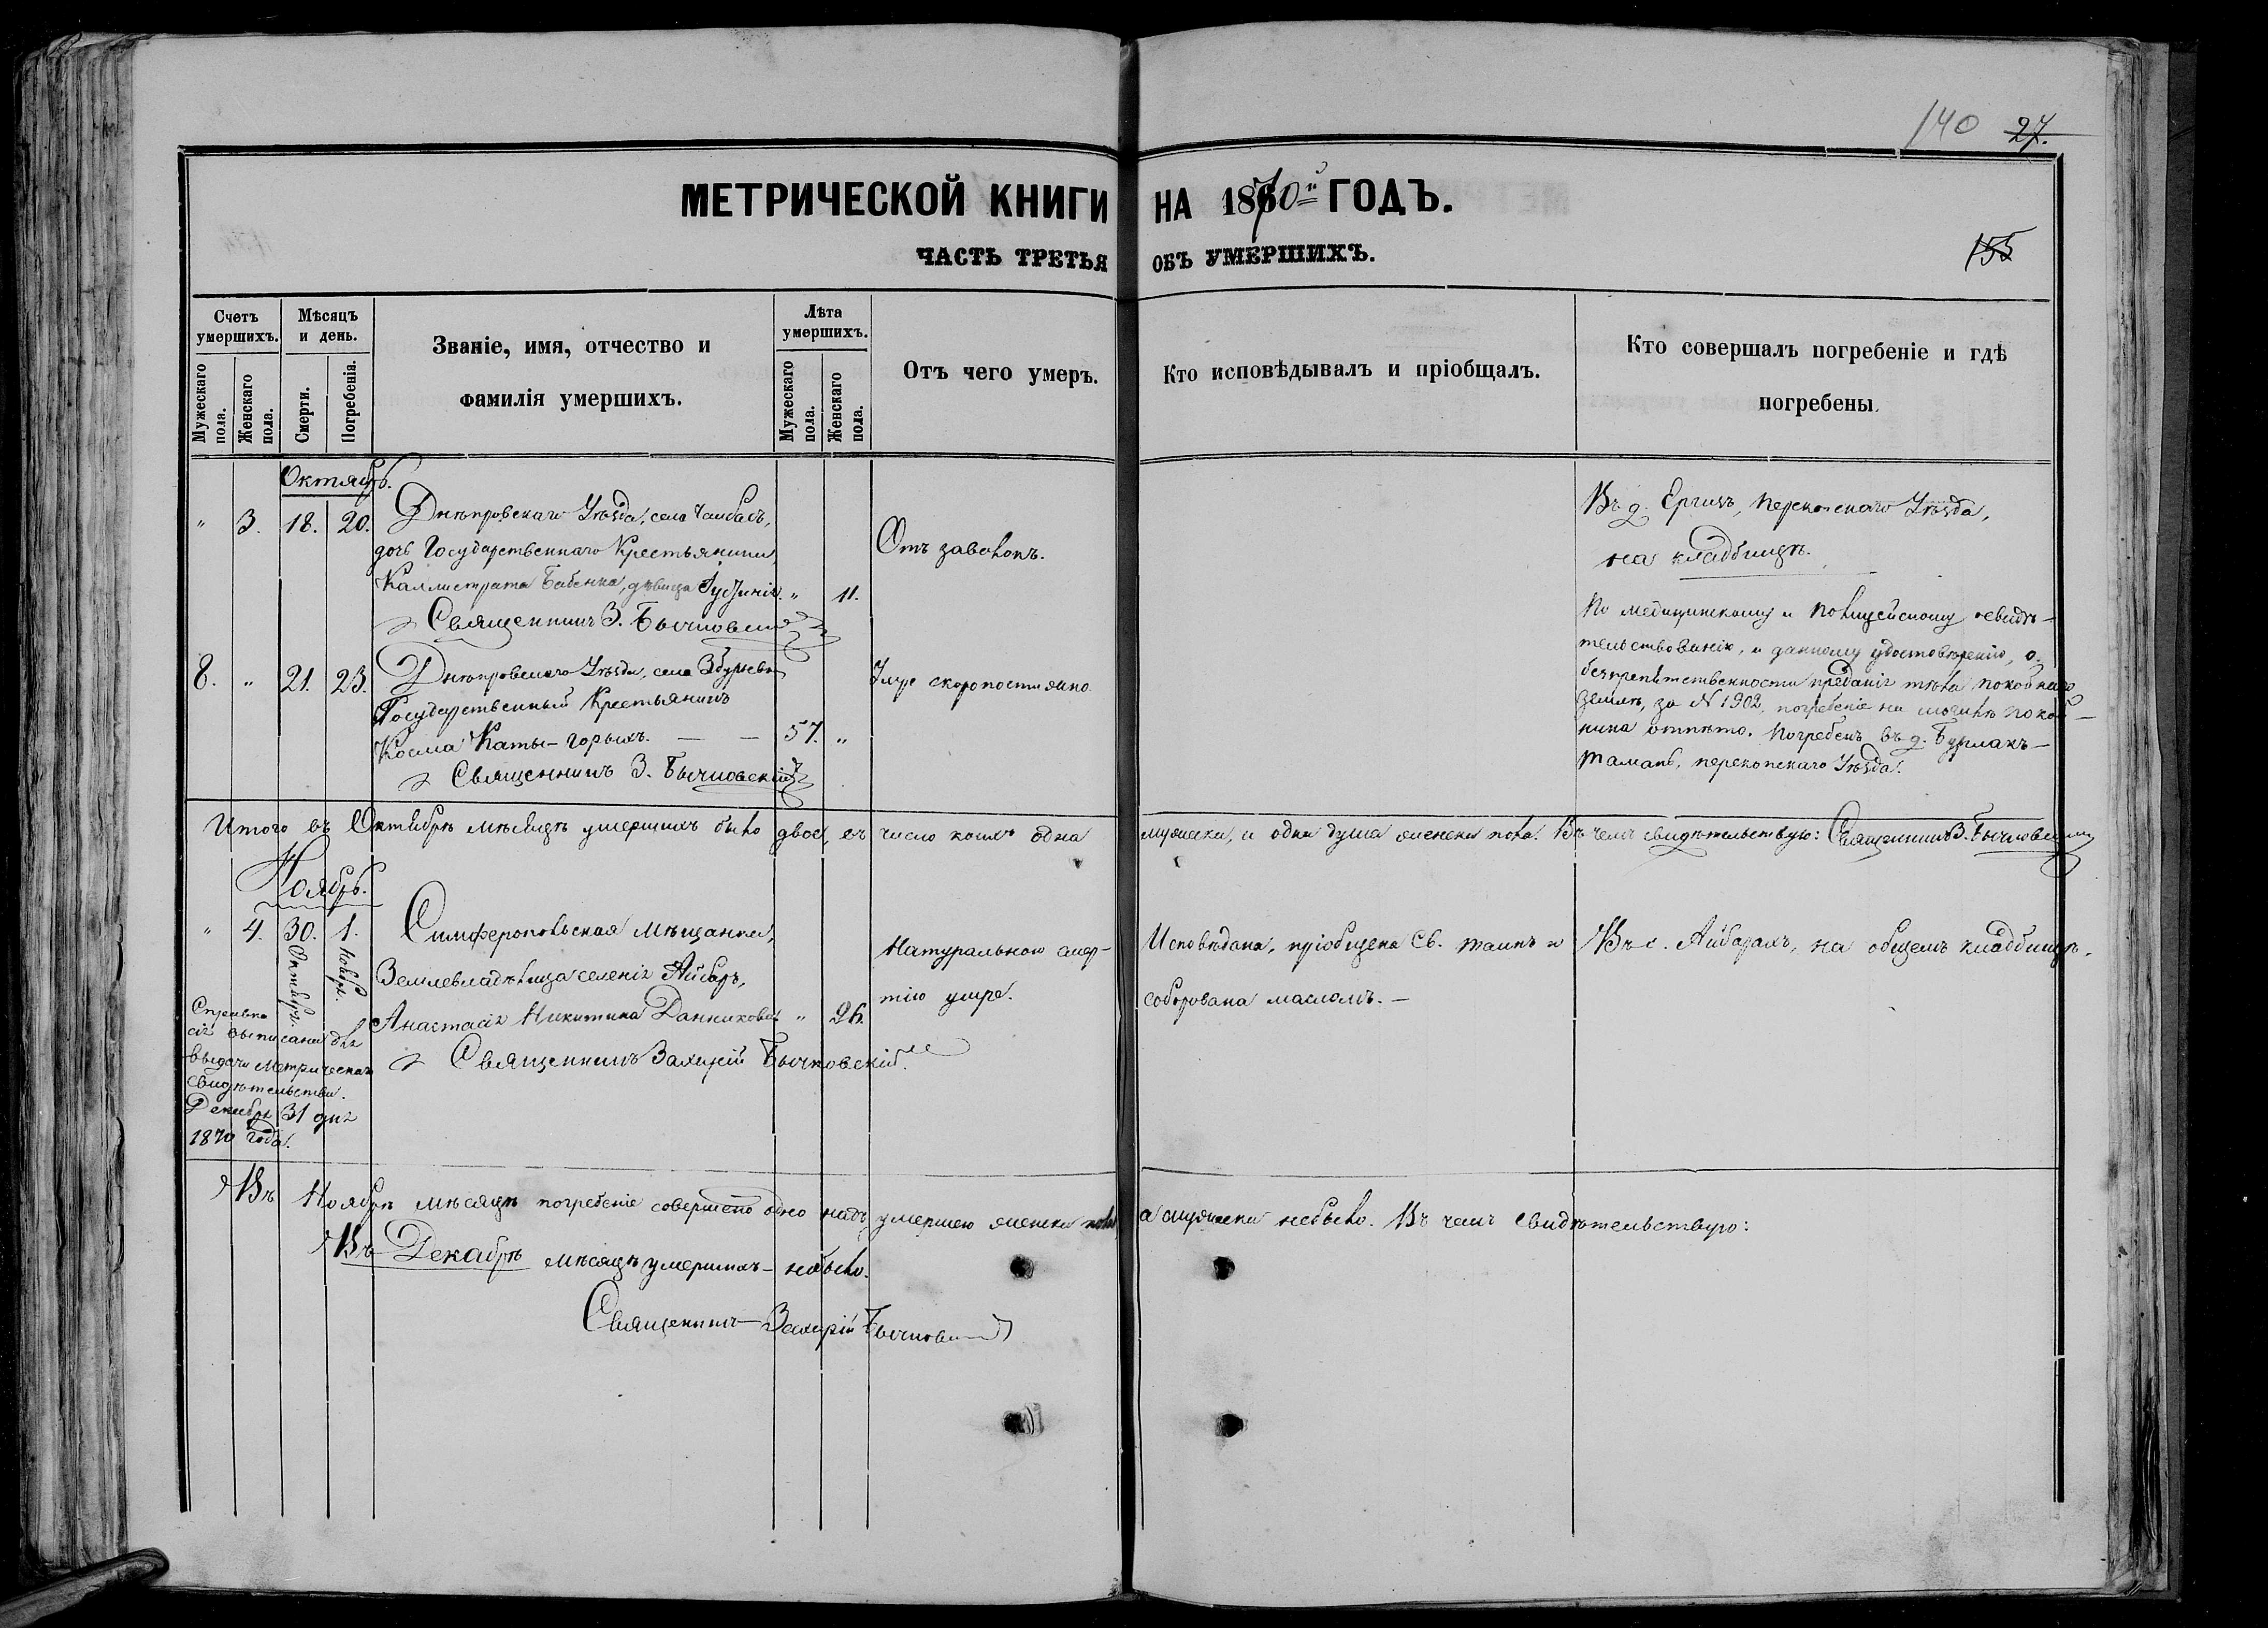 140 27.
МЕТРИЧЕСКОЙ КНИГИ НА 1870й ГОДЪ.
ЧАСТЬ ТРЕТЬЯ ОБЪ УМЕРШИХЪ.
155
Счетъ умершихъ.
Мужескаго пола.
Женскаго пола.
Мѣсяцъ и день.
Смерти.
Погребенія.
Званіе, имя, отчество и
фамилія умершихъ.
Лѣта умершихъ.
Мужескаго пола.
Женскаго пола.
Отъ чего умеръ.
Кто исповѣдывалъ и пріобщалъ.
Кто совершалъ погребеніе и гдѣ
погребены.
Октябрь.
" 3. 18. 20. Днѣпровскаго Уѣзда, села Чалбасъ,
дочь Государственнаго Крестьянина,
Каллистрата Бабенка, дѣвица " 11.
Священникъ З. Бычковскій
Отъ
Въ д. Ергинъ, Перекопскаго Уѣзда,
на кладбищѣ.
8. " 21. 23. Днѣпровскаго Уѣзда, села Збурьевки
Государственный Крестьянинъ
Косма Каты-горыхъ. — — 57. "
Священникъ З. Бычковскій
Умре скоропостижно
По медицинскому и полицейскому освидѣ-
тельствованію, и данному удостовѣренію, о
безпрепятственности преданія тѣла покойнаго
землѣ, за N 1902, погребеніе на могилѣ покой-
ника отпѣто. Погребенъ въ д. Бурлакъ-
Тамакъ, перекопскаго Уѣзда.
Итого въ Октябрѣ мѣсяцѣ умершихъ было двое, въ число коихъ одна мужеска, и одна душа женска пола. Въ чемъ свидѣтельствую: Священникъ З. Бычковскій
Ноябрь.
" 4. 30. Октября. 1. Ноября. Симферопольская Мѣщанка,
Землевладѣлица селенія Айбаръ,
Анастасія Никитина Данникова " 26.
Священникъ Захарій Бычковскій
Натуральною смер-
тію умре.
Исповѣдана, пріобщена Св. таинъ и
соборована масломъ. —
Въ с. Айбарахъ, на общемъ кладбищѣ.
Справка
сія выписана для
выдачи Метрическаго
свидѣтельства.
Декабря 31 дня
1870 года.
Въ Ноябрѣ мѣсяцѣ погребеніе совершено одно надъ умершею женска пола а мужеска небыло. Въ чемъ свидѣтельствую:
Въ Декабрѣ мѣсяцѣ умершихъ — небыло.
Священникъ Захарій Бычковскій